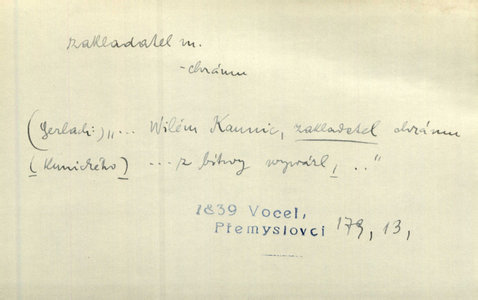 zakladatel m.
-chrámu
(Gerlach:) „... Wilém Kaunic, zakladatel chrámu
(Kunického) ... z bitwy wywázl, .."
1839 Vocel,
Přemyslovci 179, 13,